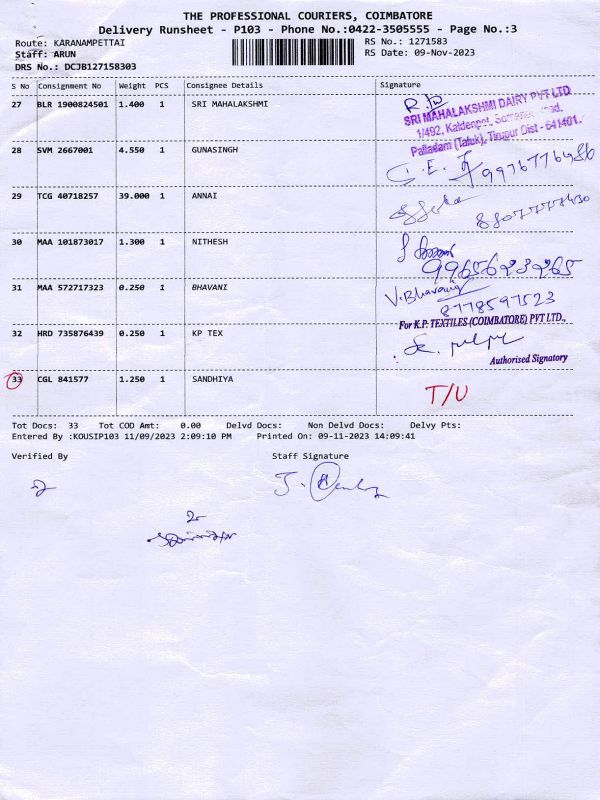 THE PROFESSIONAL COURIERS, COIMBATORE
Delivery Runsheet - P103 - Phone No.:0422-3505555 - Page No.:3
Route: KARANAMPETTAI
RS No.: 1271583
Staff: ARUN
RS Date: 09-Nov-2023
DRS No.: DCJB127158303
S No Consignment No Weight PCS Consignee Details Signature
27 BLR 1900824501 1.400 1 SRI MAHALAKSHMI
SRI MAHALAKSHMI DAIRY PVT LTD
1/492, Kaldenpot, road,
Palladam (Taluk), Tirupur Dist - 641401.
28 SVM 2667001 4.550 1 GUNASINGH
9976776986
29 TCG 40718257 39.000 1 ANNAI
8807777430
30 MAA 101873017 1.300 1 NITHESH
9965623265
31 MAA 572717323 0.250 1 BHAVANI
V.Bhavani
8778597523
32 HRD 735876439 0.250 1 KP TEX
For K.P. TEXTILES (COIMBATORE) PVT LTD.,
Authorised Signatory
33 CGL 841577 1.250 1 SANDHIYA
T/U
Tot Docs: 33 Tot COD Amt: 0.00 Delvd Docs: Non Delvd Docs: Delvy Pts:
Entered By :KOUSIP103 11/09/2023 2:09:10 PM Printed On: 09-11-2023 14:09:41
Verified By Staff Signature